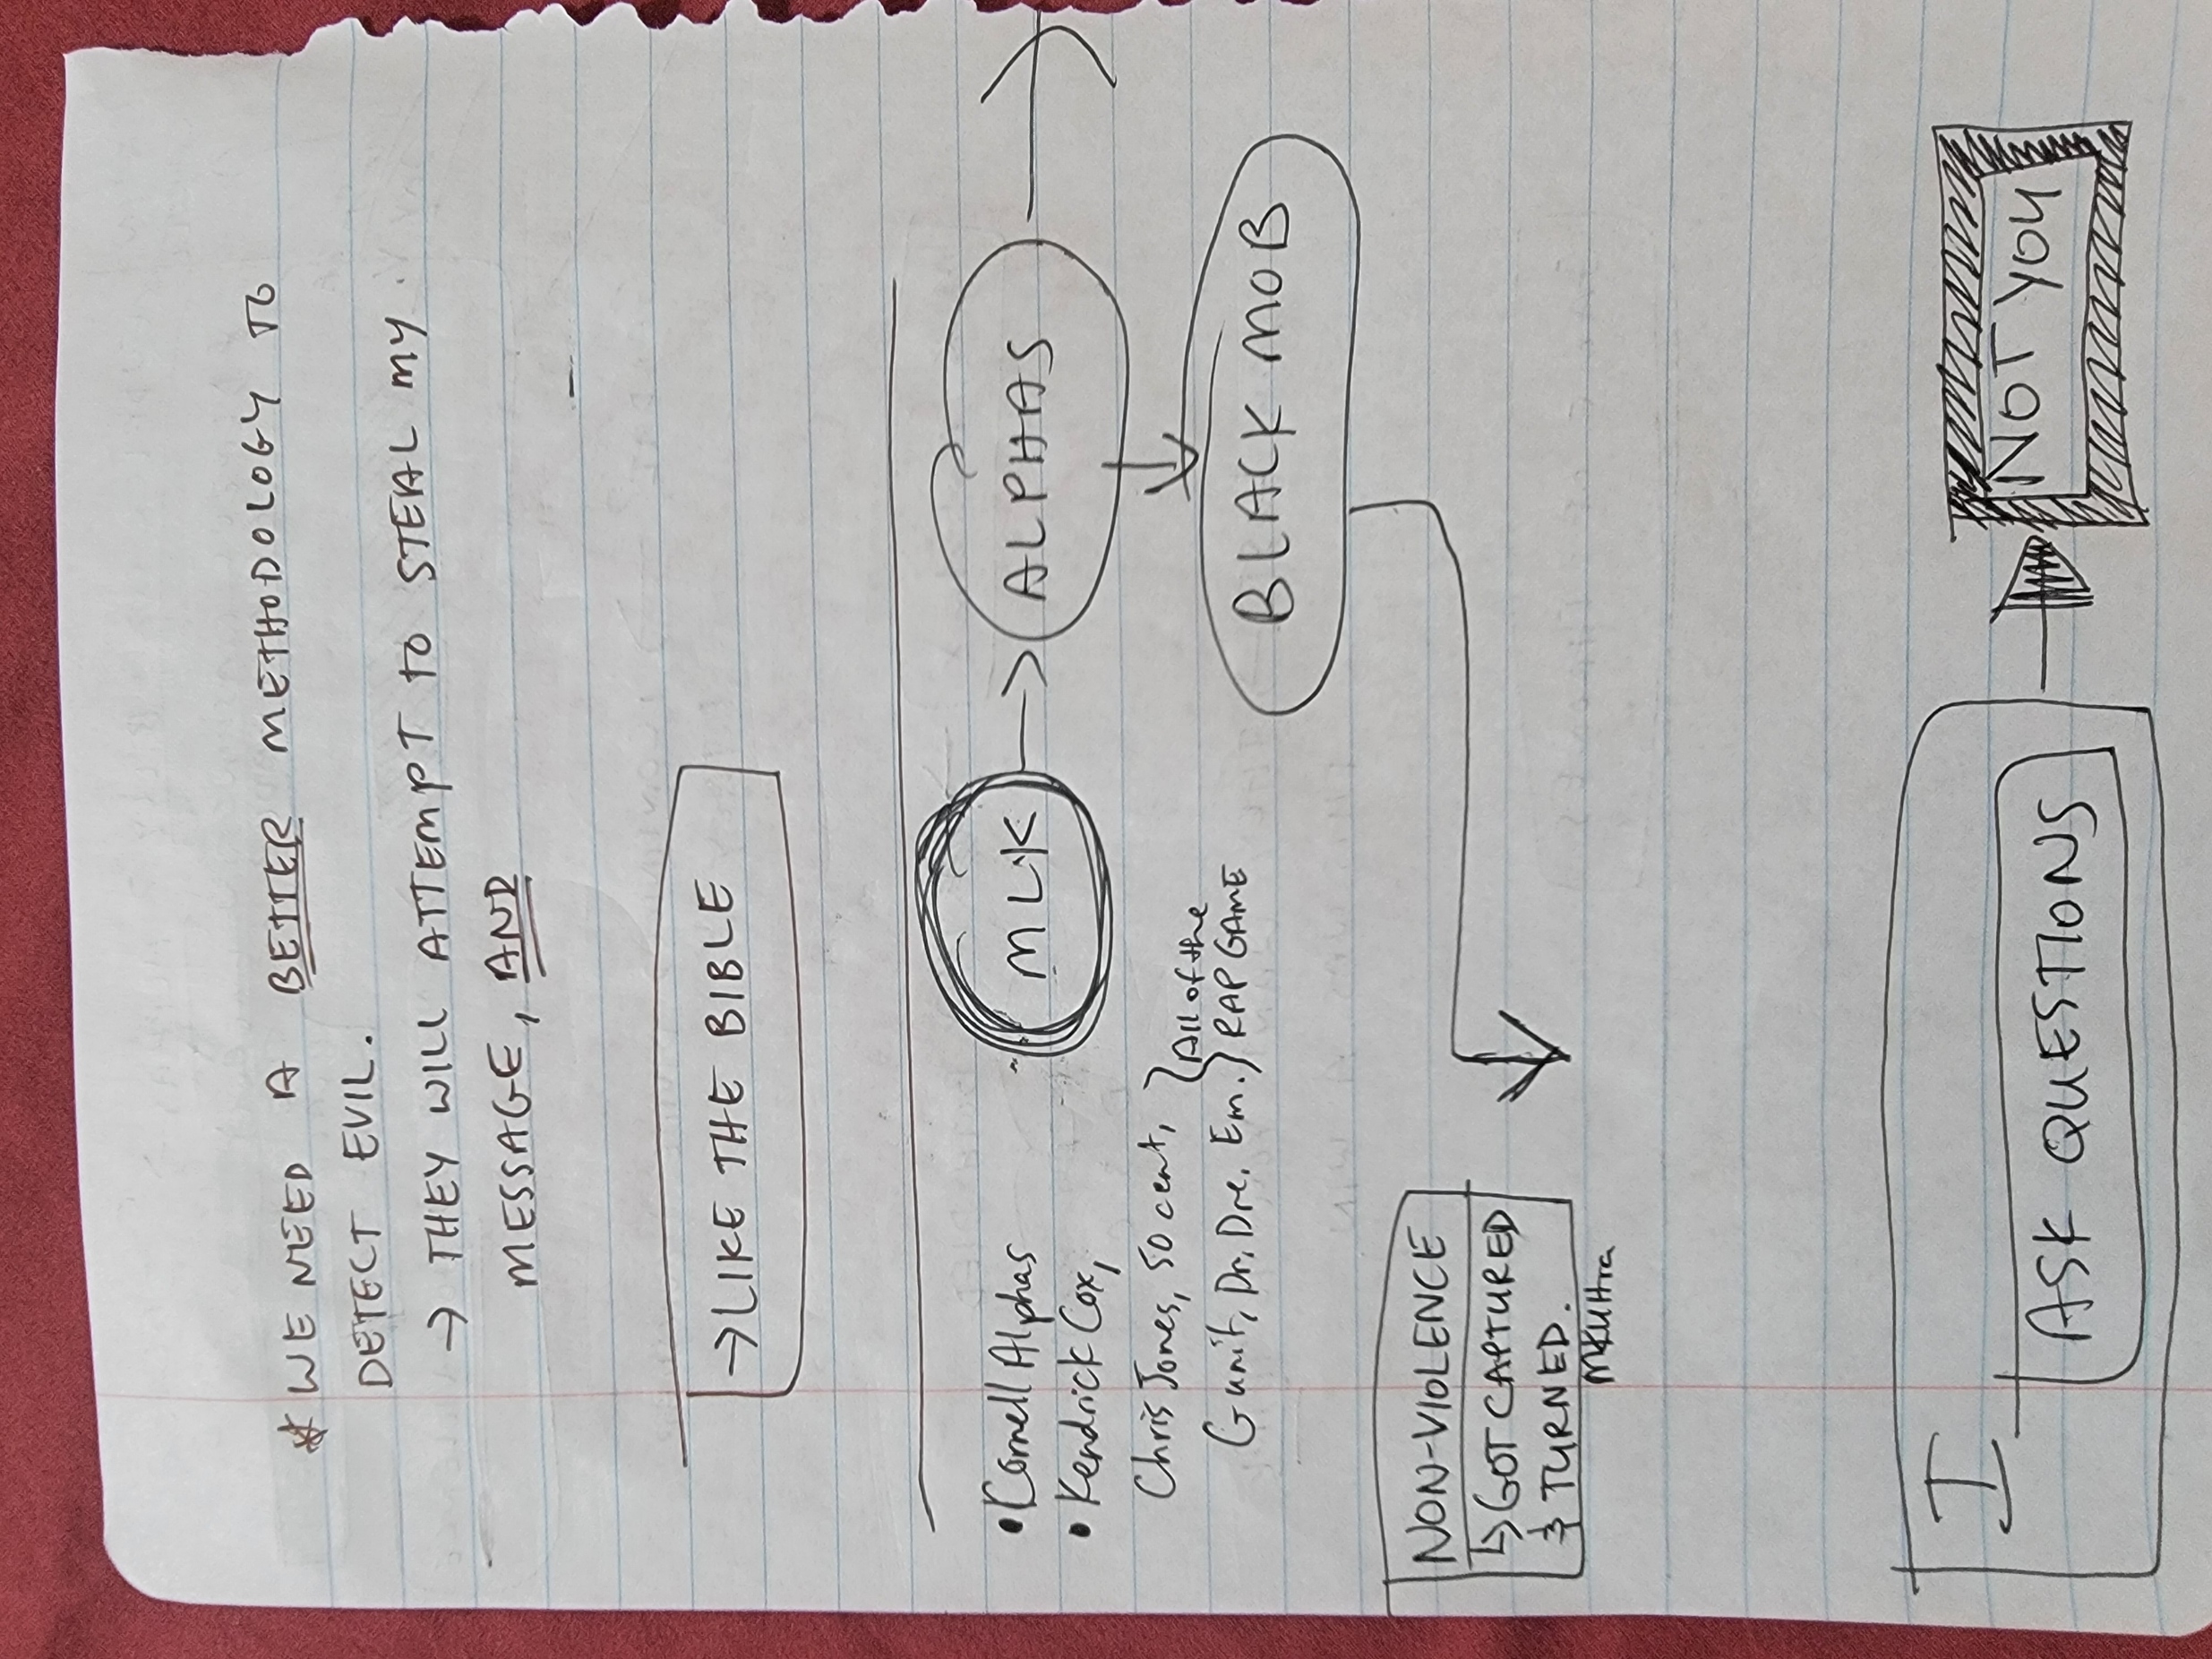 * WE NEED A BETTER METHODOLOGY TO
DETECT EVIL.
→ THEY WILL ATTEMPT TO STEAL MY
MESSAGE, AND
→ LIKE THE BIBLE
• Cornell Alphas
• Kendrick Cox,
Chris Jones, 50 cent,
Gunit, Dr. Dre. Em.
} All of the
RAP GAME
MLK → ALPHAS →
BLACK MOB
NON-VIOLENCE
↳ GOT CAPTURED
& TURNED.
MKUltra
I
ASK QUESTIONS
NOT YOU